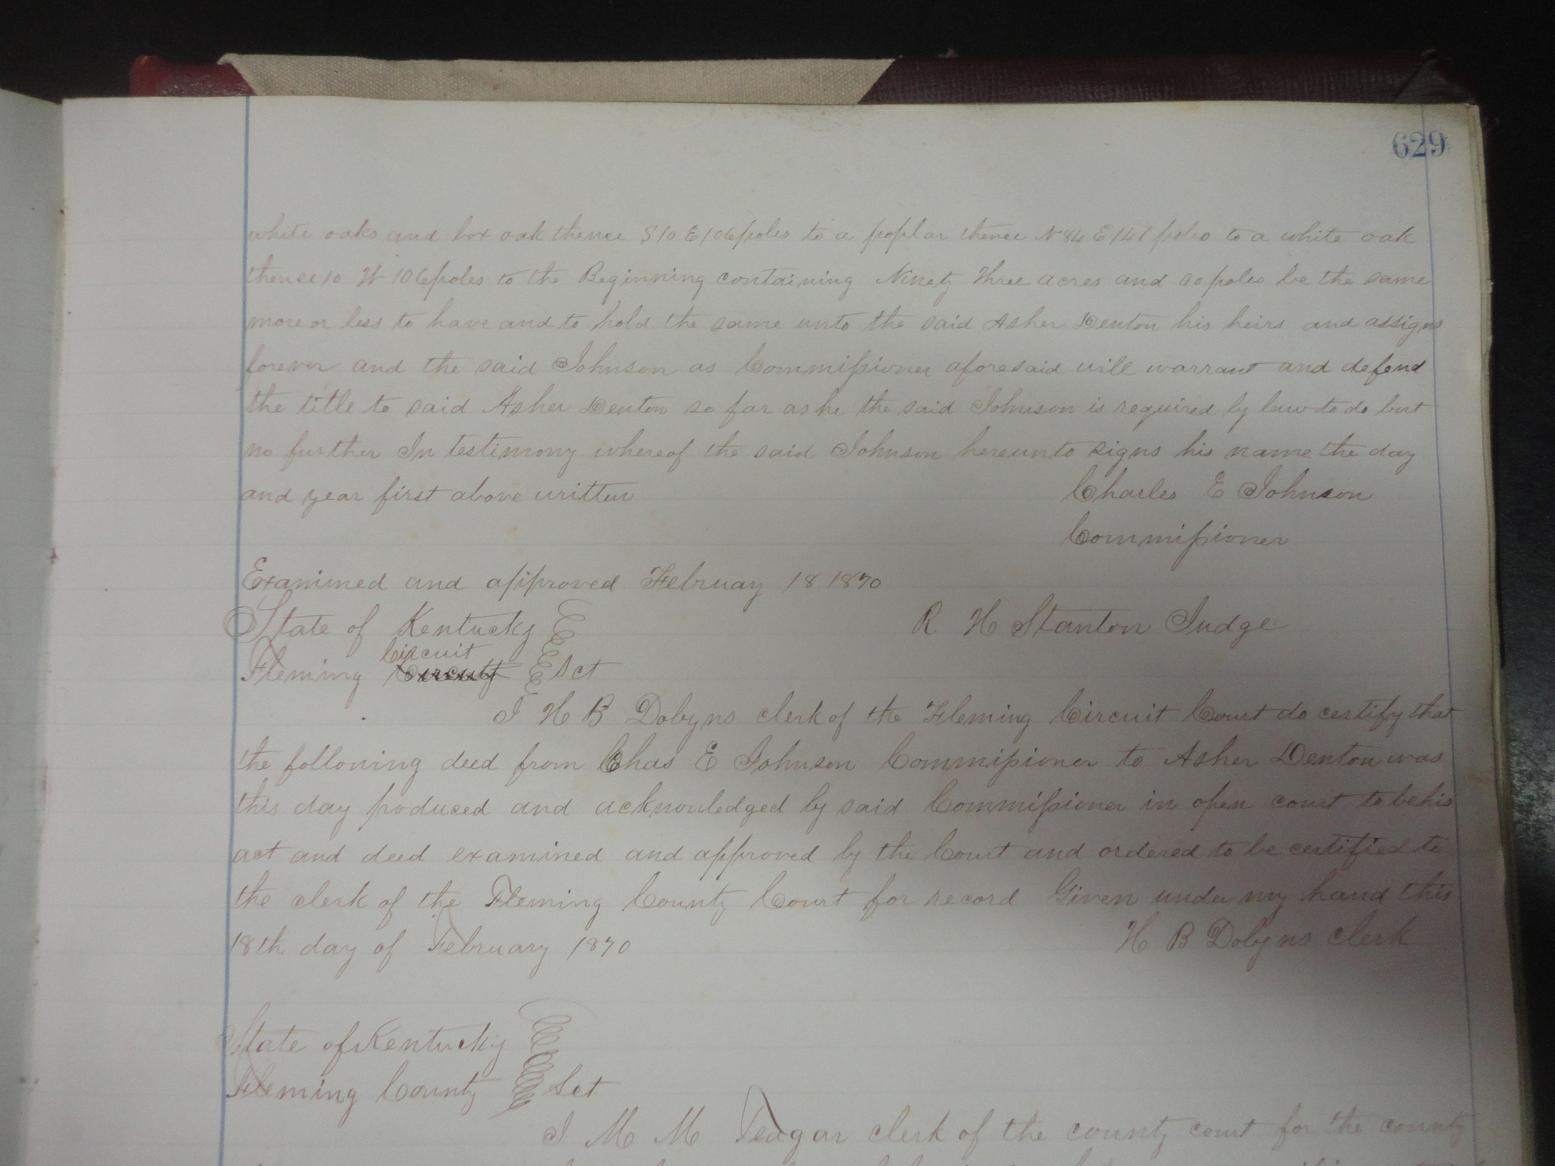 629
white oaks and box oak thence S10 E 106 poles to a poplar thence N 84 E 141 poles to a white oak
thence 10 W 106 poles to the Beginning containing Ninety Three acres and 20 poles be the same
more or less to have and to hold the same unto the said Asher Denton his heirs and assigns
forever and the said Johnson as Commissioner aforesaid will warrant and defend
the title to said Asher Denton so far as he the said Johnson is required by law to do but
no further In testimony whereof the said Johnson hereunto signs his name the day
and year first above written Charles E Johnson
Commissioner
Examined and approved February 18 1870
State of Kentucky R H Stanton Judge
Fleming Circuit Sct
I H B Dobyns clerk of the Fleming Circuit Court do certify that
the following deed from Chas E Johnson Commissioner to Asher Denton was
this day produced and acknowledged by said Commissioner in open court to be his
act and deed examined and approved by the Court and ordered to be certified to
the clerk of the Fleming County Court for record Given under my hand this
18th day of February 1870 H B Dobyns clerk
State of Kentucky
Fleming County Sct
I M M Teagar clerk of the county court for the county